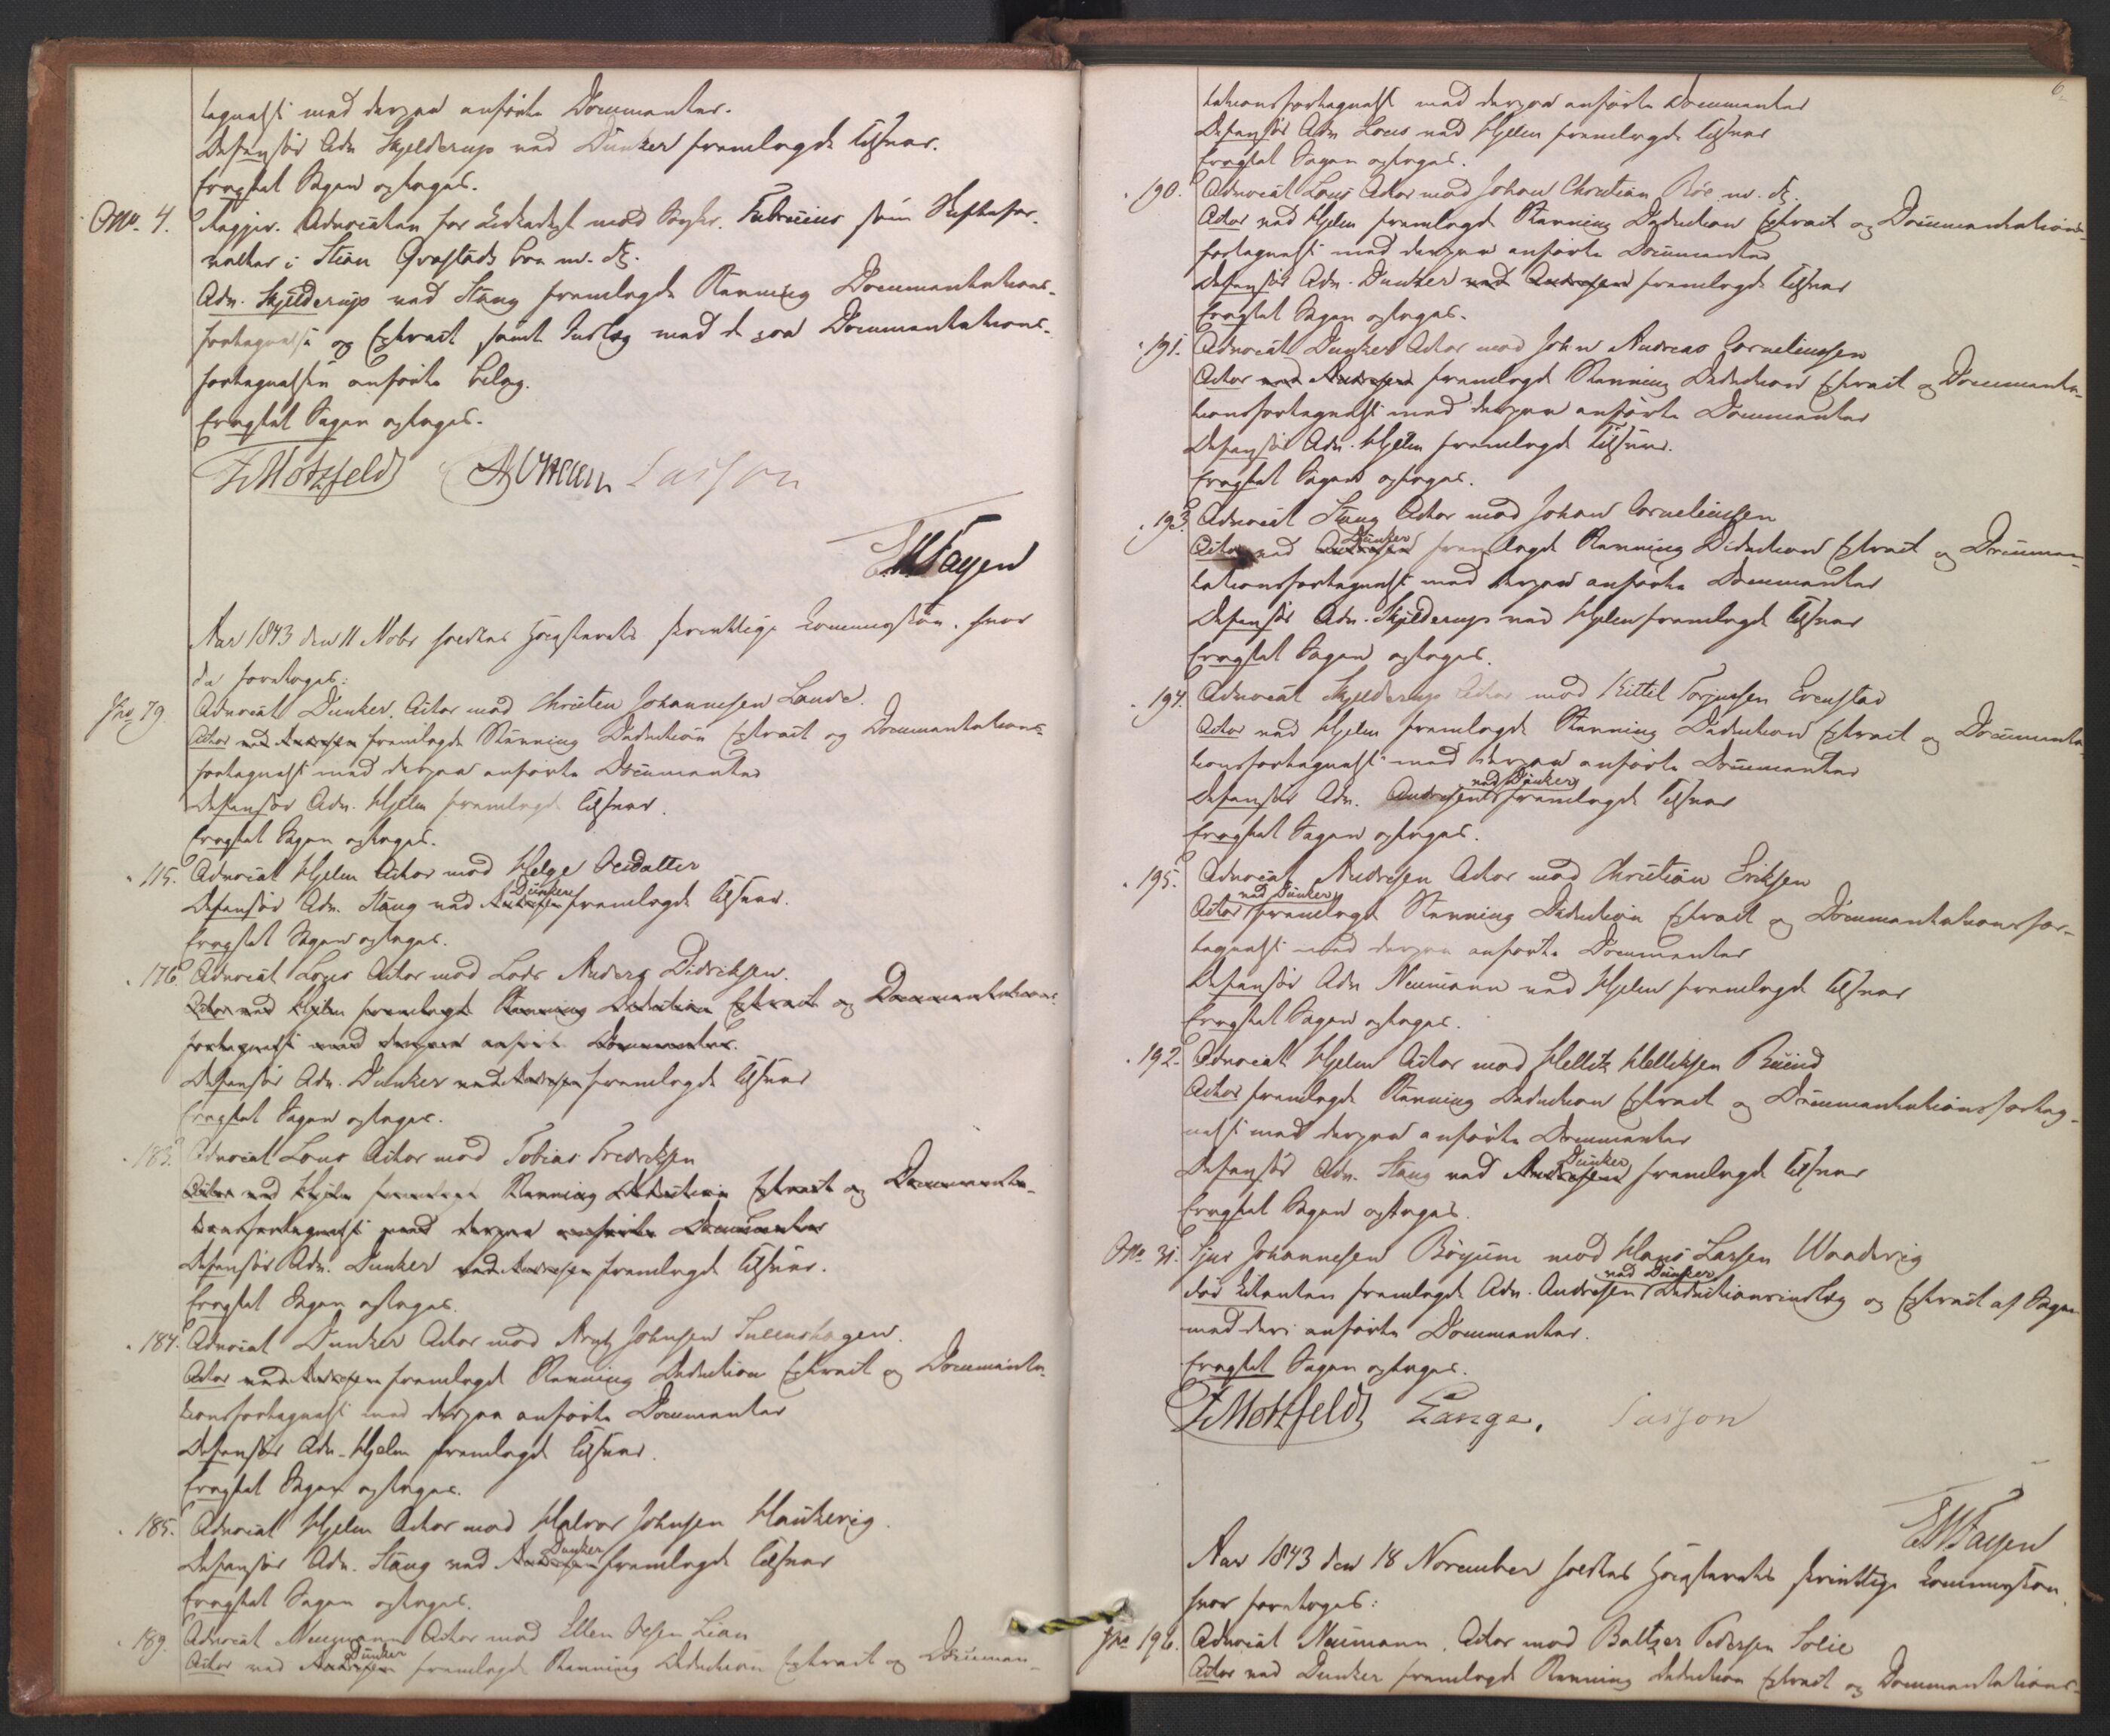 tegnelse med derpaa anførte Documenter.
Defensor Adv. Hjelderup ved Dunker fremlagde Tilsvar.
Eragtet Sagen optages.
No. 4. Regjer. Advocaten for mod Fabricius som Skiftefor-
valter i Stian Qvæstads Boe m. fl.
Adv. Hjelderup ved Stang fremlagde Stævning Documentations-
fortegnelse og Extract samt Indlæg med de paa Documentations-
fortegnelsen anførte Bilag.
Eragtet Sagen optages.
F Motzfeldt Lasson
Fayen
Aar 1843 den 11 Nobr holdtes Høiesterets skriftlige Commission, hvor
da foretoges:
79. Advocat Dunker, Actor mod Christen Johannesen Lande.
Actor ved Andresen fremlagde Stævning Deduction Extract og Documentations-
fortegnelse med derpaa anførte Documenter
Defensor Adv. Hjelm fremlagde Tilsvar.
Eragtet Sagen optages.
115. Advocat Hjelm Actor mod Helge Osdatter
Defensor Adv. Stang ved Andresen Dunker fremlagde Tilsvar.
Eragtet Sagen optages.
176. Advocat Lous Actor mod Lods Anders Didriksen.
Actor ved Hjelm fremlagde Stævning Deduction Extract og Documentations-
fortegnelse med derpaa anførte Documenter.
Defensor Adv. Dunker ved Andresen fremlagde Tilsvar
Eragtet Sagen optages.
183. Advocat Lous Actor mod Tobias Fredriksen
Actor ved Hjelm fremlagde Stævning Deduction Extract og Documenta-
tionsfortegnelse med derpaa anførte Documenter
Defensor Adv. Dunker ved Andresen fremlagde Tilsvar.
Eragtet Sagen optages.
184. Advocat Dunker Actor mod Arnt Johnsen
Actor ved Andresen fremlagde Stævning Deduction Extract og Documenta-
tionsfortegnelse med derpaa anførte Documenter
Defensor Adv. Hjelm fremlagde Tilsvar.
Eragtet Sagen optages.
185. Advocat Hjelm Actor mod Halvor Johnsen Haukevig.
Defensor Adv. Stang ved Andresen Dunker fremlagde Tilsvar
Eragtet Sagen optages.
189. Advocat Neumann Actor mod Ellen Olsen Lian
Actor ved Andresen Dunker fremlagde Stævning Deduction Extract og Documen-
6
tationsfortegnelse med derpaa anførte Documenter
Defensor Adv. Lous ved Hjelm fremlagde Tilsvar
Eragtet Sagen optages.
190. Advocat Lous Actor mod Johan Christian Röe m. fl.
Actor ved Hjelm fremlagde Stævning Deduction Extract og Documentations-
fortegnelse med derpaa anførte Documenter
Defensor Adv. Dunker ved Andresen fremlagde Tilsvar
Eragtet Sagen optages.
191. Advocat Dunker Actor mod John Andreas Corneliussen
Actor ved Andresen fremlagde Stævning Deduction Extract og Documenta-
tionsfortegnelse med derpaa anførte Documenter
Defensor Adv. Hjelm fremlagde Tilsvar.
Eragtet Sagen optages.
193. Advocat Stang Actor mod Johan Corneliussen
Actor ved Andresen Dunker fremlagde Stævning Deduction Extract og Documen-
tationsfortegnelse med derpaa anførte Documenter
Defensor Adv. Hjelderup ved Hjelm fremlagde Tilsvar
Eragtet Sagen optages.
194. Advocat Hjelderup Actor mod Kittil Torjussen Evenstad
Actor ved Hjelm fremlagde Stævning Deduction Extract og Documenta-
tionsfortegnelse med derpaa anførte Documenter
Defensor Adv. Andresen ved Dunker fremlagde Tilsvar
Eragtet Sagen optages.
195. Advocat Andresen Actor mod Christian Eriksen
Actor ved Dunker fremlagde Stævning Deduction Extract og Documentationsfor-
tegnelse med derpaa anførte Documenter
Defensor Adv. Neumann ved Hjelm fremlagde Tilsvar
Eragtet Sagen optages.
192. Advocat Hjelm Actor mod Hellik Helliksen
Actor fremlagde Stævning Deduction Extract og Documentationsforteg-
nelse med derpaa anførte Documenter
Defensor Adv. Stang ved Andresen Dunker fremlagde Tilsvar
Eragtet Sagen optages.
No. 31. Sjur Johannesen Böyum mod Hans Larsen
For Citanten fremlagde Adv. Andresen ved Dunker Deductionsindlæg og Extract af Sagen
med deri anførte Documenter.
Eragtet Sagen optages.
F Motzfeldt Lange. Lasson
Fayen
Aar 1843 den 18 November holdtes Høiesterets skriftlige Commission,
hvor foretoges:
196. Advocat Neumann, Actor mod Baltzer Pedersen Solie
Actor ved Dunker fremlagde Stævning Deduction Extract og Documentations-